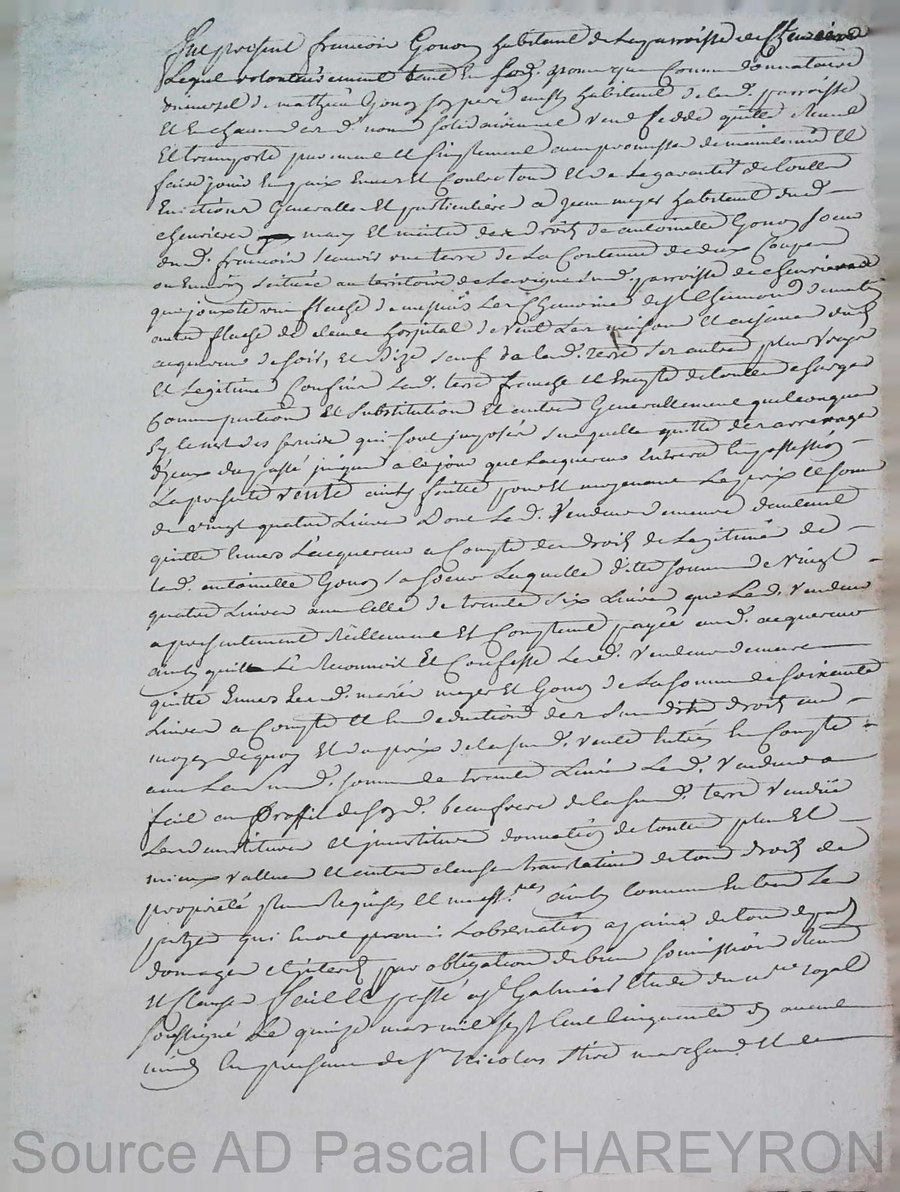 Fut present françois Gonon habitant de la parroisse de Cheurière
Lequel volontairement tant en son nom que comme donnataire
universel de mathieu Gonon son pere aussy habitant de lad. parroisse
Et en chacun desd. noms solidairement vend cedde quitte
Et transporte purement et simplement avec promesse de maintenir et
faire jouir En paix Envers et Contre tous Et de la garantir de toutes
Evictions Generalles Et particulières a jean meyer habitant dud.
cheuriere mary Et maitre des droits de antoinette Gonon soeur
dud. françois scavoir une terre de La Contenue de deux Coupes
ou Environ scituée au territoire de dud. parroisse de cheuriere
que jouxte une de messieurs Les Chanoines de St Cheimond de matin
autre de hospital de vent Les maison et aisance dud.
acquereur de soir, Et Bize sauf de lad. terre ses autres plus vrays
Et Legitimes Confins Lad. terre franche et Exempte de toutes charges
Et Substitution Et autres Generallement quelconques
sy ce n'est des servis qui sont imposés sur quelle quitte des arrerages
d'jceux du passé jusques a ce jour que Lacquereur Entrera En possession
La presente vente ainsy faitte pour et moyenant Le prix et somme
de vingt quatre Livres dont Led. vendeur demeure
quitte Envers L'acquereur a Compte des droits de Legitime de
lad. antoinette Gonon sa soeur Laquelle ditte somme de vingt
quatre Livres avec Celle de trente six Livres que Led. vendeur
a presentement réellement Et Comptant payée aud. acquereur
ainsy quil Le Reconnoit Et Confesse Led. vendeur demeure
quitte Envers Lesd. mariés meyer Et Gonon de La somme de soixante
Livres a Compte et En deduction des Susdits droits au
moyen de quoy Et du prix de lasusd. vente Entrés En Compte
avec La Susd. somme de trente Livres Led. vendeur a
fait au Proffit de sond. beaufrere de lasusd. terre vendüe
Les constitutions et investiture donnation de toutte plus Et
mieux vallüe et autres clauses translatives de tous droits de
proprieté plus Requises et necess.res ainsy Convenu Entre Les
parties qui En ont promis Lobservation a peine de tous depens
domages et interets par obligation de biens soumissions
Et Clauses Fait Et passé a St Galmier Etude du nore royal
soussigné Le quinze mars mil sept Cent Cinquante dix avant
midy En presence de Sr Nicolas marchand Et de
Source AD Pascal CHAREYRON